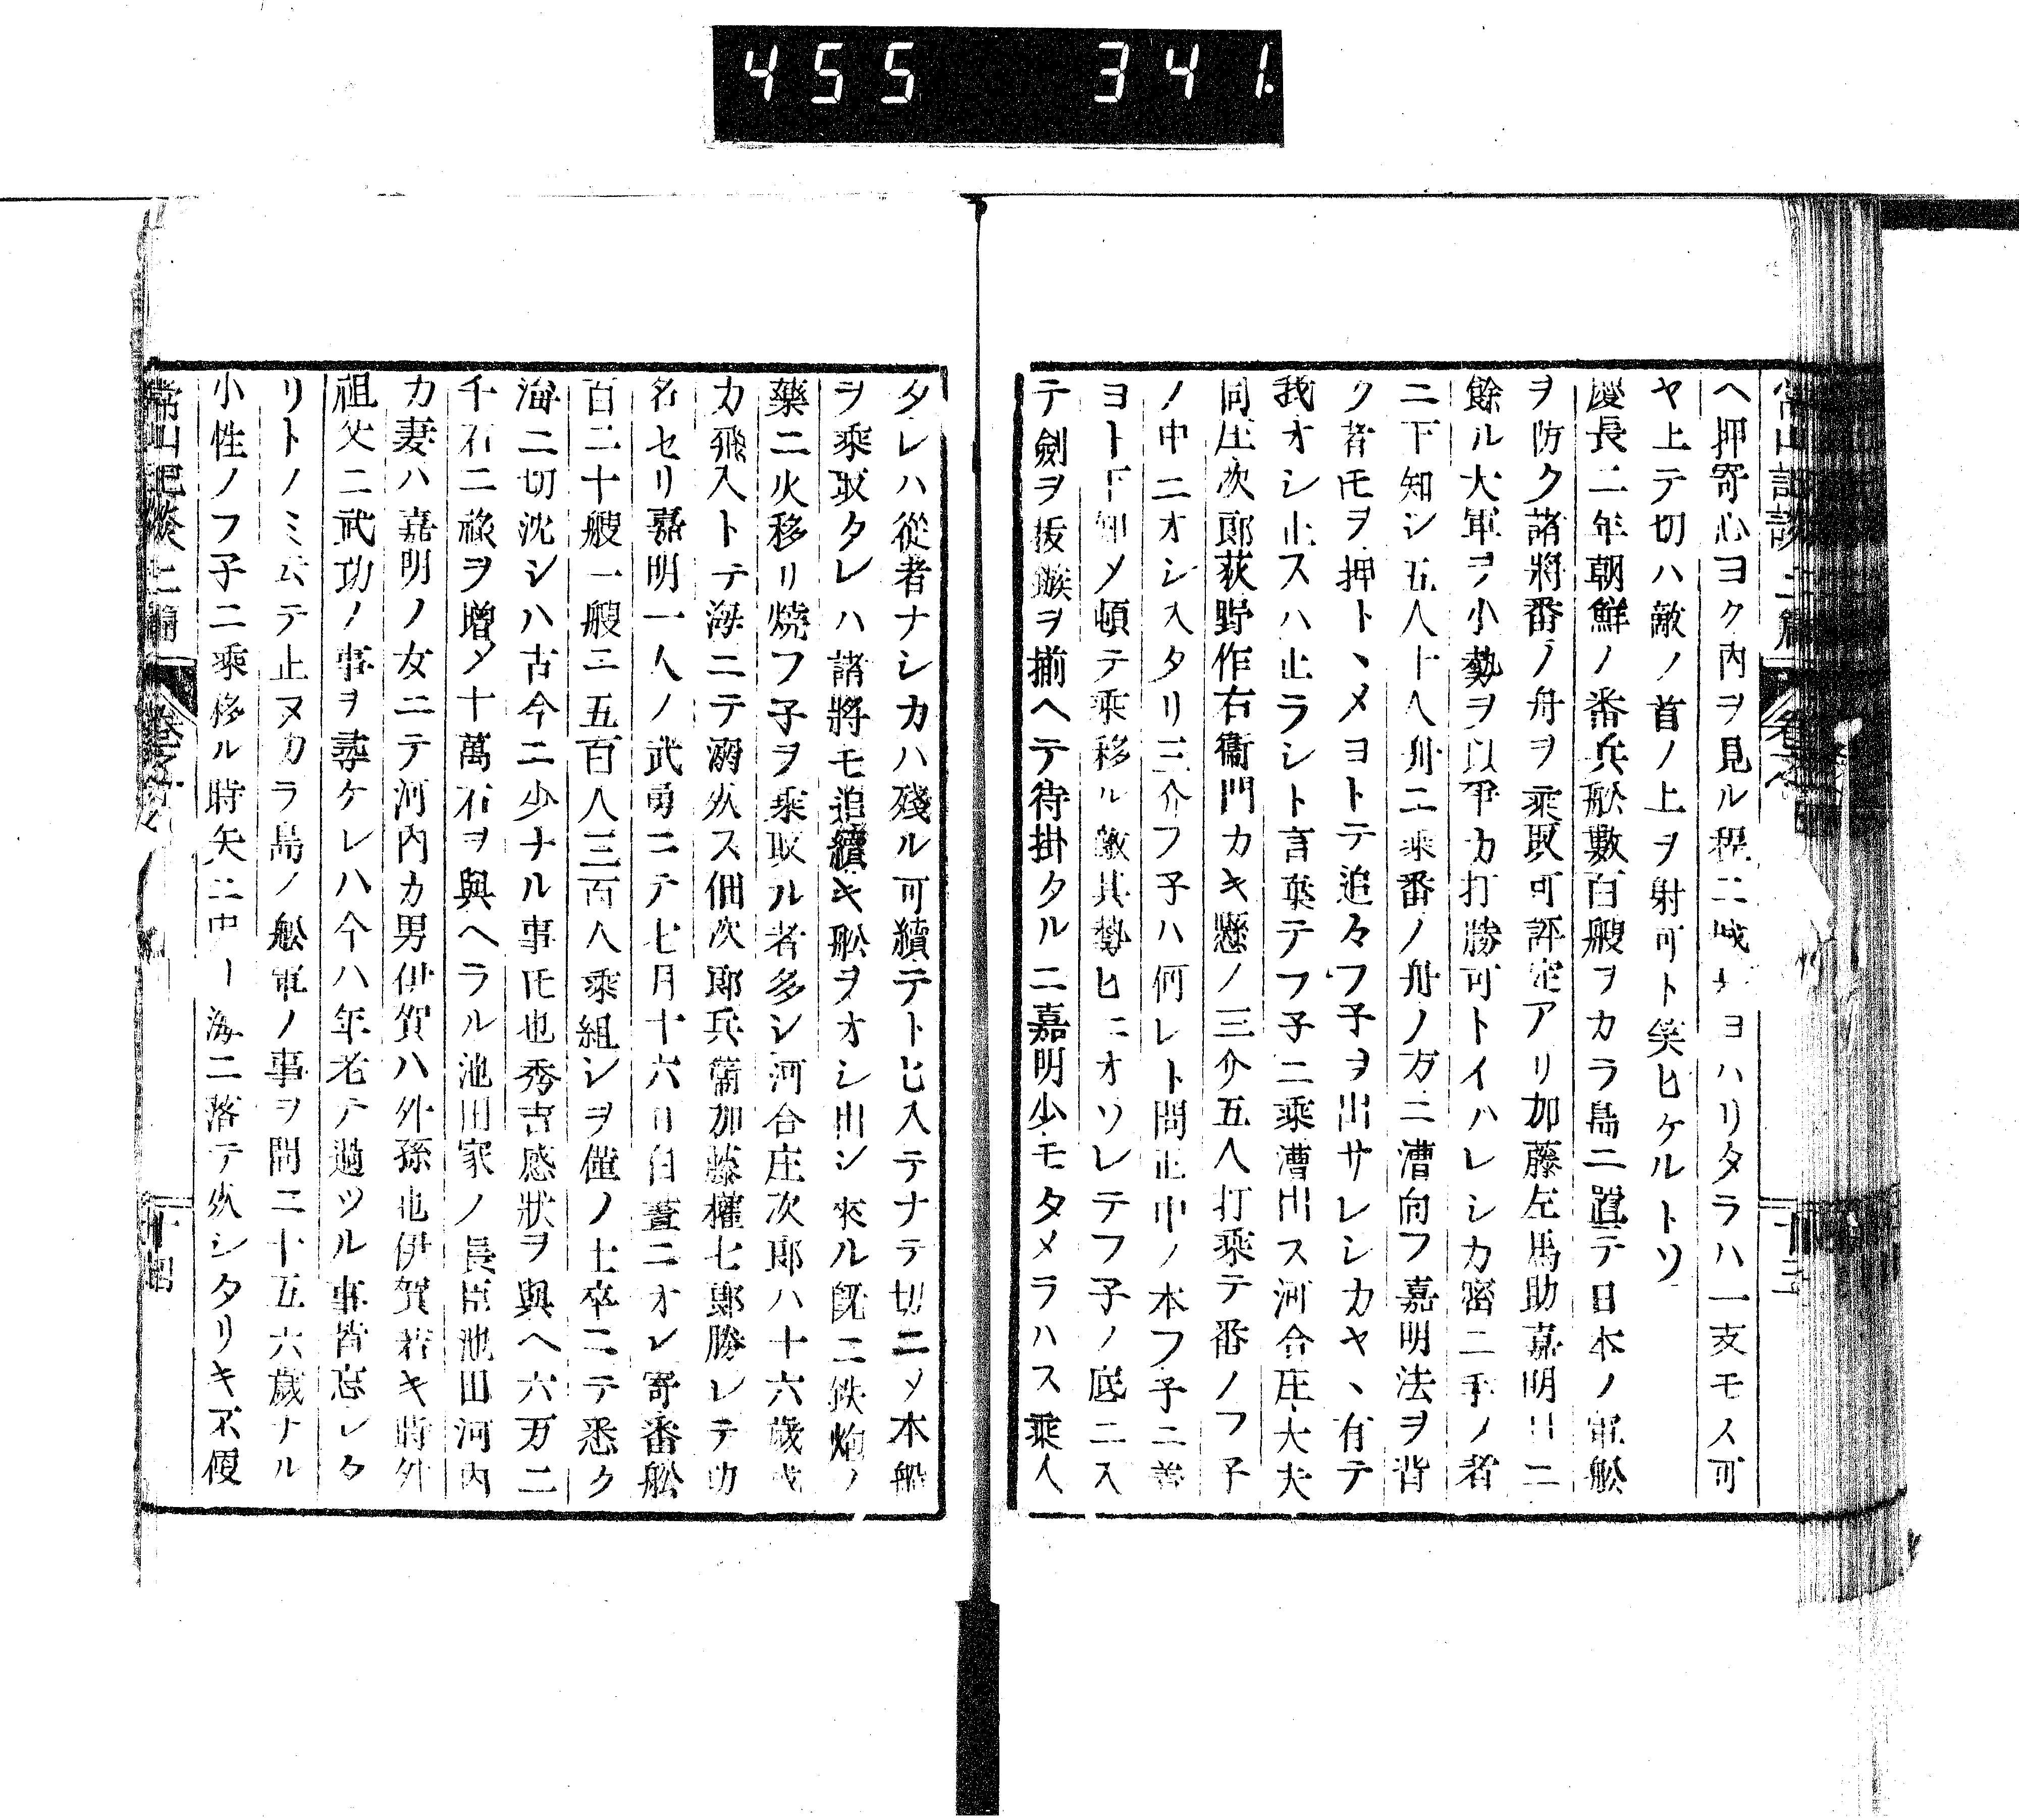 455 341.
常山記談 二篇 巻之 十三
ヘ押寄心ヨク内ヲ見ル程ニ城ナヨハリタラハ一支モス可
ヤ上テ切ハ敵ノ首ノ上ヲ射可ト笑ヒケルトソ
慶長二年朝鮮ノ番兵舩數百艘ヲカラ島ニ置テ日本ノ軍舩
ヲ防ク諸將番ノ舟ヲ乘取可評定アリ加藤左馬助嘉明日ニ
餘ル大軍ヲ小勢ヲ以爭カ打勝可トイハレシカ密ニ手ノ者
ニ下知シ五人十人舟ニ乘番ノ舟ノ方ニ漕向フ嘉明法ヲ背
ク者モヲ押トヽメヨトテ追々フ子ヲ出サレシカヤヽ有テ
我オシ止スハ止ラシト言棄テフ子ニ乘漕出ス河合庄大夫
同庄次郎荻野作右衞門カキ懸ノ三介五人打乘テ番ノフ子
ノ中ニオシ入タリ三介フ子ハ何レト問正中ノ本フ子ニ着
ヨト下知メ頓テ乘移ル敵其勢ヒニオソレテフ子ノ底ニ入
テ劍ヲ抜鏃ヲ揃ヘテ待掛タルニ嘉明少モタメラハス乘人
タレハ從者ナシカハ殘ル可續テトヒ入テナテ切ニメ本船
ヲ乘取タレハ諸將モ追續キ舩ヲオシ出シ來ル旣ニ鉄炮ノ
藥ニ火移リ燒フ子ヲ乘取ル者多シ河合庄次郎ハ十六歳
カ飛入トテ海ニテ溺死ス佃次郎兵衞加藤權七郎勝レテ功
名セリ嘉明一人ノ武勇ニテ七月十六日白晝ニオレ寄番舩
百二十艘一艘ニ五百人三百人乘組シヲ僅ノ士卒ニテ悉ク
海ニ切沈シハ古今ニ少ナル事𪜈也秀吉感狀ヲ與ヘ六万二
千石ニ祿ヲ増メ十萬石ヲ與ヘラル池田家ノ長臣池田河内
カ妻ハ嘉明ノ女ニテ河内カ男伊賀ハ外孫也伊賀若キ時外
祖父ニ武功ノ事ヲ尋ケレハ今ハ年老テ過ツル事皆忘レタ
リトノミ云テ止ヌカラ島ノ舩軍ノ事ヲ問ニ十五六歳ナル
小性ノフ子ニ乘移ル時矢ニ中リ海ニ落テ死シタリキ不便
常山紀談二編 巻之 十四